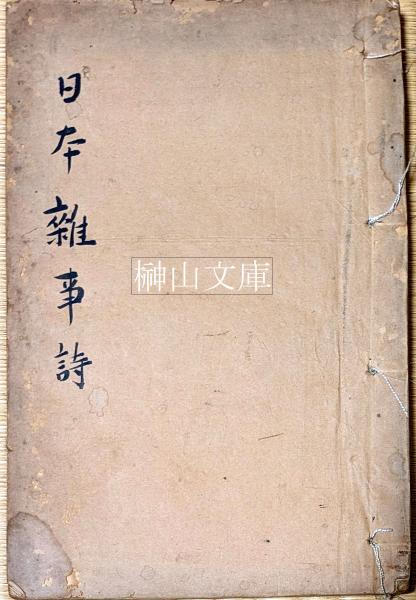 日本雜事詩
榊山文庫